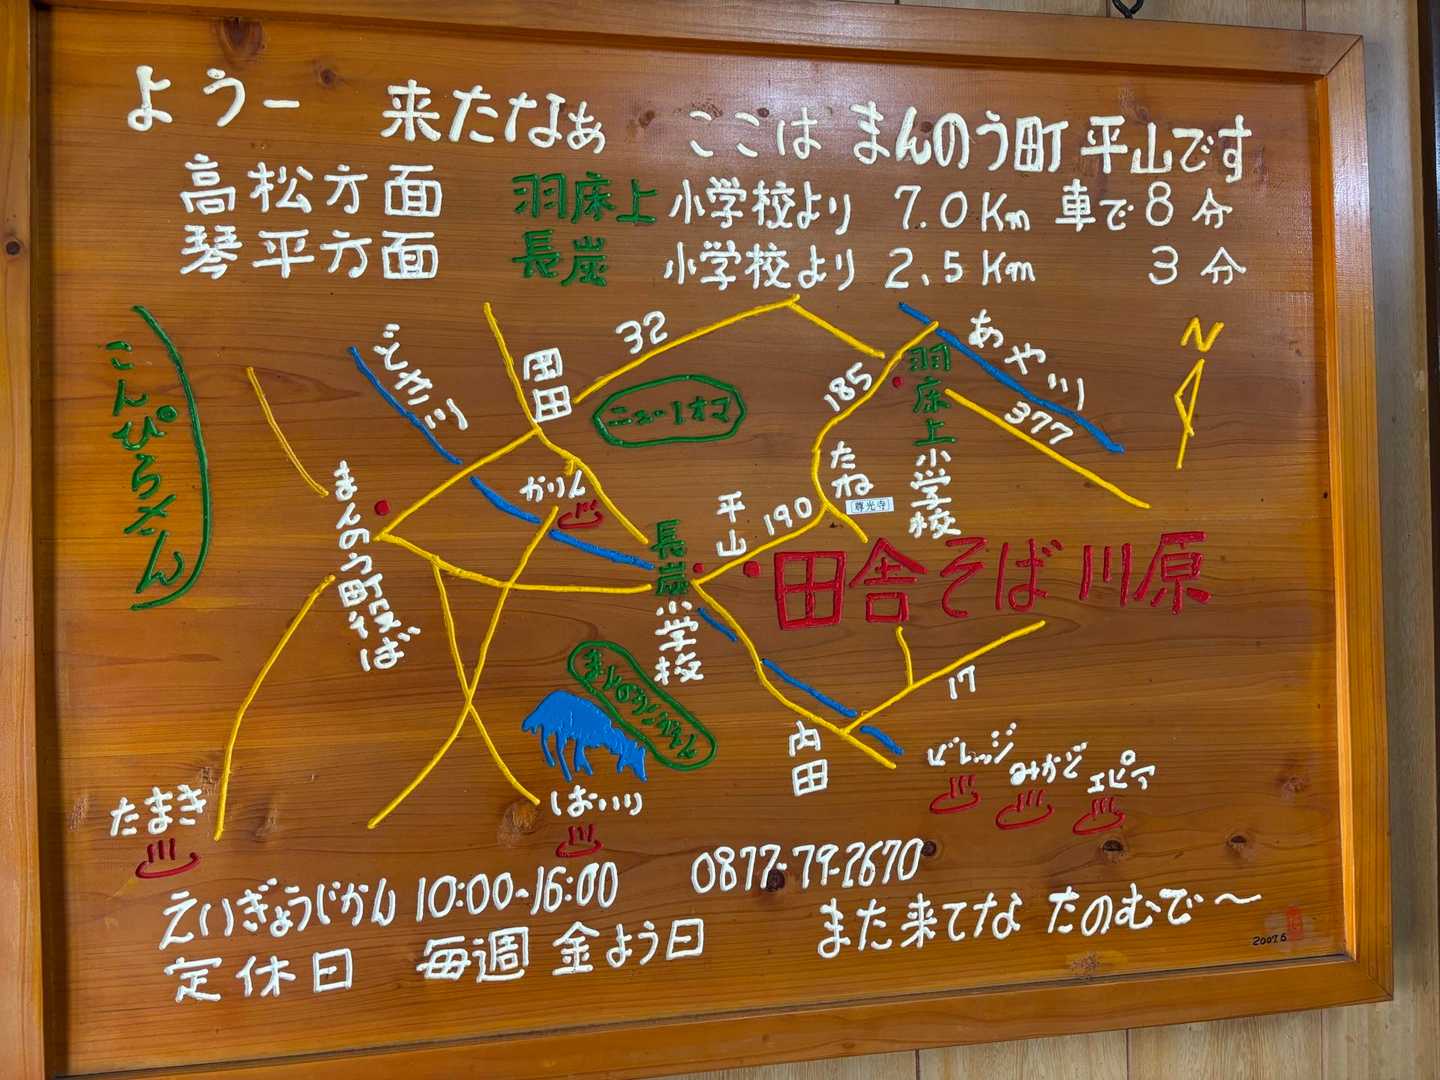 ようー 来たなぁ ここは まんのう町 平山です
高松方面 羽床上 小学校より 7.0Km 車で8分
琴平方面 長炭 小学校より 2.5Km 3分
こんぴらさん
どき川
岡田
32
ニューレオマ
185
羽床上小学校
あや川
377
N
まんのう町役ば
かりん
長炭小学校
平山
190
たね
尊光寺
田舎そば川原
17
内田
たまき
しおいり
ビレッジ
みかど
エピア
えいぎょうじかん 10:00~16:00 0877-79-2670
定休日 毎週 金よう日 また来てな たのむで〜
2007.6